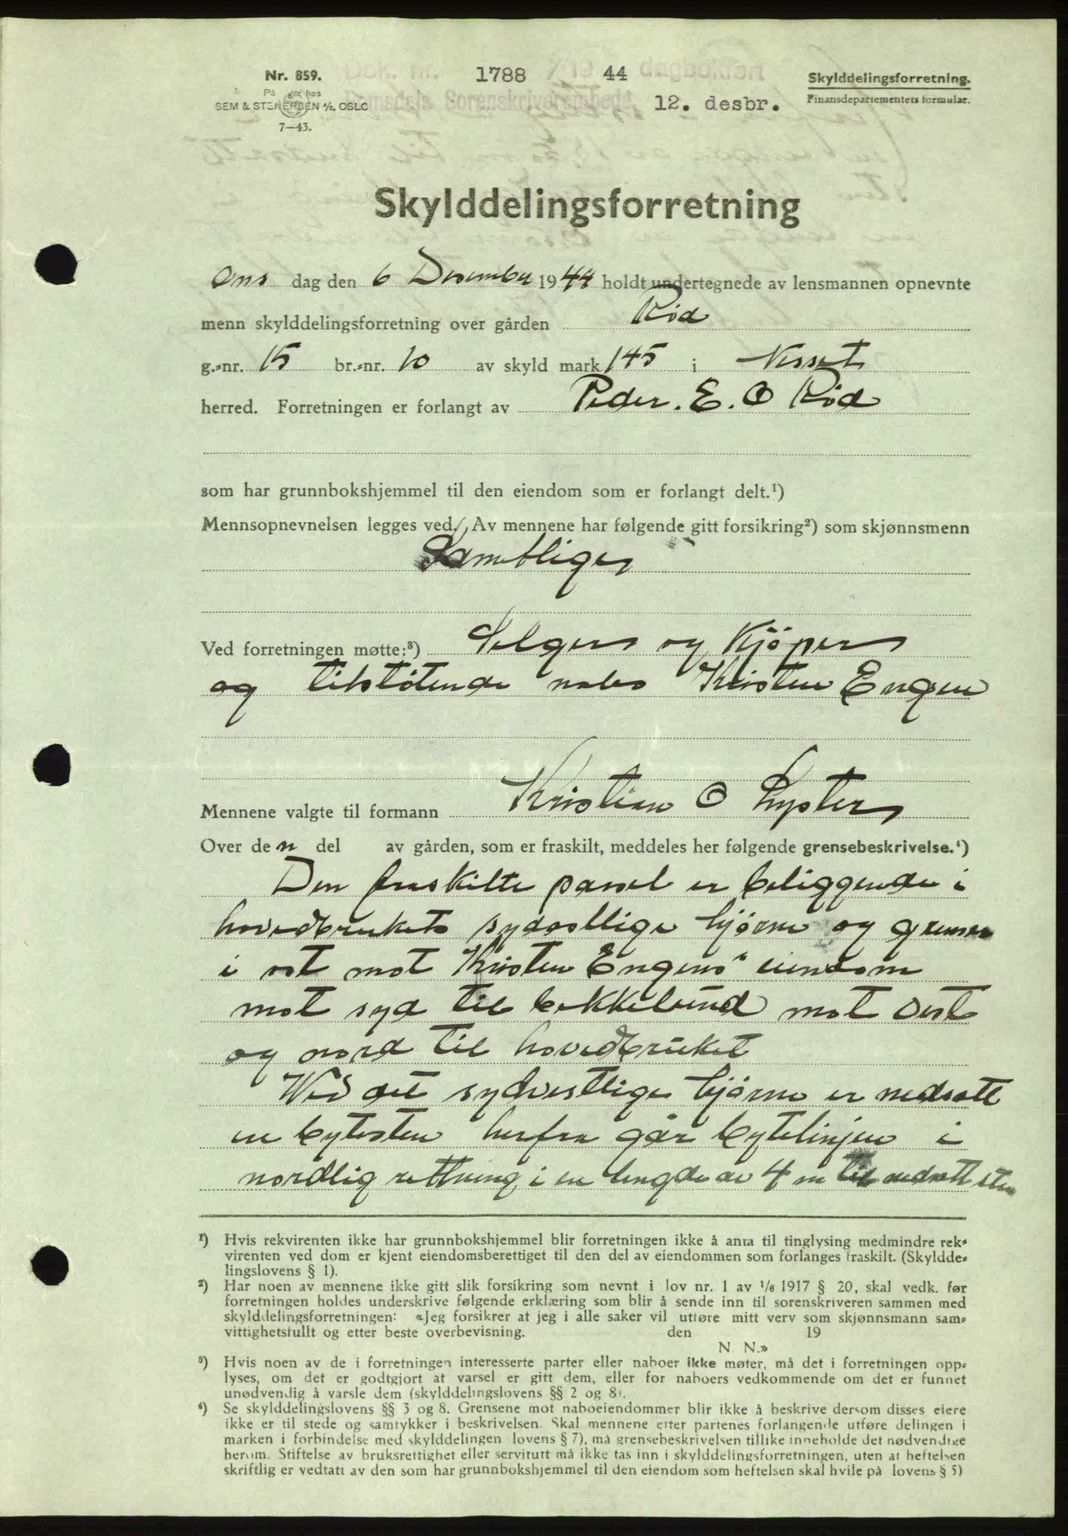 Nr. 859.
På lager hos
SEM & STENERSEN A/S, OSLO
7—43.
Dok. nr. 1788 / 19 44 dagbokført
Romsdals Sorenskriverembede 12. desbr.
Skylddelingsforretning.
Finansdepartementets formular.
Skylddelingsforretning
Ons dag den 6 Desember 1944 holdt undertegnede av lensmannen opnevnte
menn skylddelingsforretning over gården Rød
g.-nr. 15 br.-nr. 10 av skyld mark 145 i Nesset
herred. Forretningen er forlangt av Peder. E. O Rød
som har grunnbokshjemmel til den eiendom som er forlangt delt.¹)
Mennsopnevnelsen legges ved. Av mennene har følgende gitt forsikring²) som skjønnsmenn
Samtlige
Ved forretningen møtte:³) Selger og Kjøper
og tilstøtende nabo Kristen Engen
Mennene valgte til formann Kristian O Lyster
Over den del av gården, som er fraskilt, meddeles her følgende grensebeskrivelse.⁴)
Den fraskilte parsel er beliggende i
hovedbrukets sydøstlige hjørne og grenser
i øst mot Kristen Engens eiendom
mot syd til bekkebund mot vest
og nord til hovedbruket
Ved det sydvestlige hjørne er nedsatt
en bytesten herfra går bytelinjen i
nordlig rettning i en lengde av 4 m til nedsatt sten
¹) Hvis rekvirenten ikke har grunnbokshjemmel blir forretningen ikke å anta til tinglysing medmindre rek-
virenten ved dom er kjent eiendomsberettiget til den del av eiendommen som forlanges fraskilt. (Skyldde-
lingslovens § 1).
²) Har noen av mennene ikke gitt slik forsikring som nevnt i lov nr. 1 av 1/6 1917 § 20, skal vedk. før
forretningen holdes underskrive følgende erklæring som blir å sende inn til sorenskriveren sammen med
skylddelingsforretningen: «Jeg forsikrer at jeg i alle saker vil utføre mitt verv som skjønnsmann sam-
vittighetsfullt og etter beste overbevisning. den 19
N N.»
³) Hvis noen av de i forretningen interesserte parter eller naboer ikke møter, må det i forretningen opp-
lyses, om det er godtgjort at varsel er gitt dem, eller for naboers vedkommende om det er funnet
unødvendig å varsle dem (skylddelingslovens §§ 2 og 8).
⁴) Se skylddelingslovens §§ 3 og 8. Grensene mot naboeiendommer blir ikke å beskrive dersom disses eiere
ikke er til stede og samtykker i beskrivelsen. Skal mennene etter partenes forlangende utføre delingen i
marken i forbindelse med skylddelingen (lovens § 7), må grensebeskrivelsen tillike inneholde det nødvendige
herom. Stiftelse av bruksrettighet eller servitutt må ikke tas inn i skylddelingsforretningen, uten at heftelsen
skriftlig er vedtatt av den som har grunnbokshjemmel til den eiendom som heftelsen skal hvile på (lovens § 5)